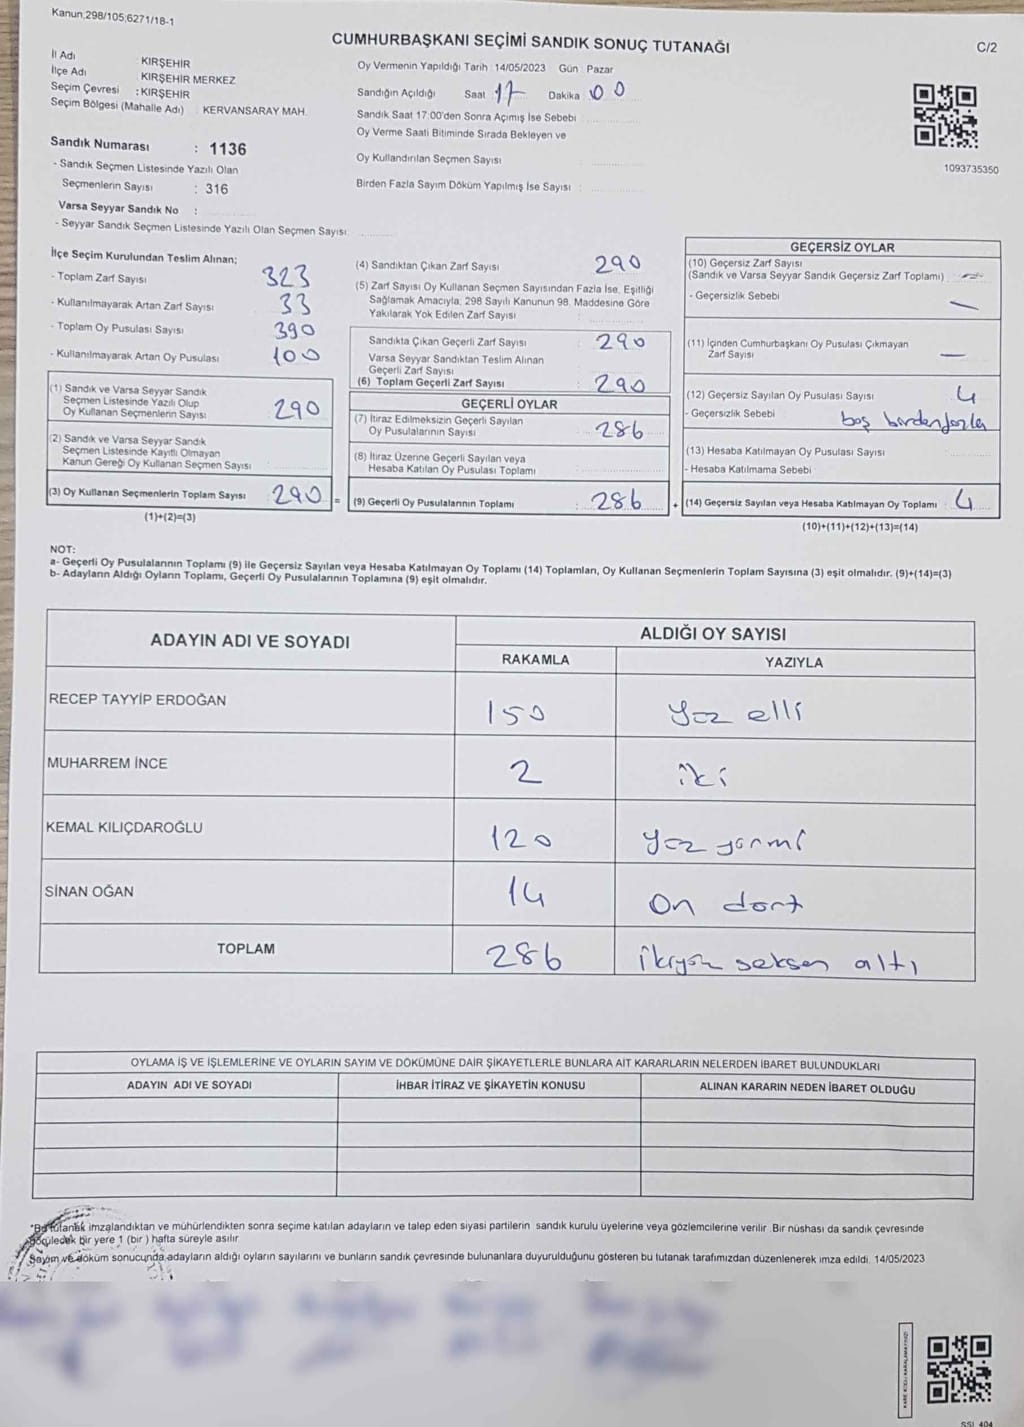 Kanun;298/105;6271/18-1
CUMHURBAŞKANI SEÇİMİ SANDIK SONUÇ TUTANAĞI
C/2
İl Adı : KIRŞEHİR
İlçe Adı : KIRŞEHİR MERKEZ
Seçim Çevresi : KIRŞEHİR
Seçim Bölgesi (Mahalle Adı) : KERVANSARAY MAH.
Oy Vermenin Yapıldığı Tarih : 14/05/2023 Gün : Pazar
Sandığın Açıldığı Saat : 17 Dakika : 00
Sandık Saat 17:00'den Sonra Açımış İse Sebebi :
Oy Verme Saati Bitiminde Sırada Bekleyen ve
Oy Kullandırılan Seçmen Sayısı :
Birden Fazla Sayım Döküm Yapılmış İse Sayısı :
1093735350
Sandık Numarası : 1136
- Sandık Seçmen Listesinde Yazılı Olan
Seçmenlerin Sayısı : 316
Varsa Seyyar Sandık No :
- Seyyar Sandık Seçmen Listesinde Yazılı Olan Seçmen Sayısı:
İlçe Seçim Kurulundan Teslim Alınan;
- Toplam Zarf Sayısı 323
- Kullanılmayarak Artan Zarf Sayısı 33
- Toplam Oy Pusulası Sayısı 390
- Kullanılmayarak Artan Oy Pusulası 100
(1) Sandık ve Varsa Seyyar Sandık
Seçmen Listesinde Yazılı Olup
Oy Kullanan Seçmenlerin Sayısı 290
(2) Sandık ve Varsa Seyyar Sandık
Seçmen Listesinde Kayıtlı Olmayan
Kanun Gereği Oy Kullanan Seçmen Sayısı
(3) Oy Kullanan Seçmenlerin Toplam Sayısı 290 =
(1)+(2)=(3)
(4) Sandıktan Çıkan Zarf Sayısı 290
(5) Zarf Sayısı Oy Kullanan Seçmen Sayısından Fazla İse, Eşitliği
Sağlamak Amacıyla, 298 Sayılı Kanunun 98. Maddesine Göre
Yakılarak Yok Edilen Zarf Sayısı :
Sandıkta Çıkan Geçerli Zarf Sayısı : 290
Varsa Seyyar Sandıktan Teslim Alınan
Geçerli Zarf Sayısı
(6) Toplam Geçerli Zarf Sayısı : 290
GEÇERLİ OYLAR
(7) İtiraz Edilmeksizin Geçerli Sayılan
Oy Pusulalarının Sayısı : 286
(8) İtiraz Üzerine Geçerli Sayılan veya
Hesaba Katılan Oy Pusulası Toplamı :
(9) Geçerli Oy Pusulalarının Toplamı : 286 +
GEÇERSİZ OYLAR
(10) Geçersiz Zarf Sayısı
(Sandık ve Varsa Seyyar Sandık Geçersiz Zarf Toplamı) :
- Geçersizlik Sebebi —
(11) İçinden Cumhurbaşkanı Oy Pusulası Çıkmayan
Zarf Sayısı —
(12) Geçersiz Sayılan Oy Pusulası Sayısı 4
- Geçersizlik Sebebi boş birdenfazla
(13) Hesaba Katılmayan Oy Pusulası Sayısı
- Hesaba Katılmama Sebebi
(14) Geçersiz Sayılan veya Hesaba Katılmayan Oy Toplamı : 4
(10)+(11)+(12)+(13)=(14)
NOT:
a- Geçerli Oy Pusulalarının Toplamı (9) ile Geçersiz Sayılan veya Hesaba Katılmayan Oy Toplamı (14) Toplamları, Oy Kullanan Seçmenlerin Toplam Sayısına (3) eşit olmalıdır. (9)+(14)=(3)
b- Adayların Aldığı Oyların Toplamı, Geçerli Oy Pusulalarının Toplamına (9) eşit olmalıdır.
ADAYIN ADI VE SOYADI ALDIĞI OY SAYISI
RAKAMLA YAZIYLA
RECEP TAYYİP ERDOĞAN 150 Yüz elli
MUHARREM İNCE 2 iki
KEMAL KILIÇDAROĞLU 120 Yüz yirmi
SİNAN OĞAN 14 On dört
TOPLAM 286 ikiyüz seksen altı
OYLAMA İŞ VE İŞLEMLERİNE VE OYLARIN SAYIM VE DÖKÜMÜNE DAİR ŞİKAYETLERLE BUNLARA AİT KARARLARIN NELERDEN İBARET BULUNDUKLARI
ADAYIN ADI VE SOYADI İHBAR İTİRAZ VE ŞİKAYETİN KONUSU ALINAN KARARIN NEDEN İBARET OLDUĞU
*Bu tutanak imzalandıktan ve mühürlendikten sonra seçime katılan adayların ve talep eden siyasi partilerin sandık kurulu üyelerine veya gözlemcilerine verilir. Bir nüshası da sandık çevresinde
görülecek bir yere 1 (bir ) hafta süreyle asılır.
Sayım ve döküm sonucunda adayların aldığı oyların sayılarını ve bunların sandık çevresinde bulunanlara duyurulduğunu gösteren bu tutanak tarafımızdan düzenlenerek imza edildi. 14/05/2023
KARE KODU KARALAMAYINIZ!
SSI 404